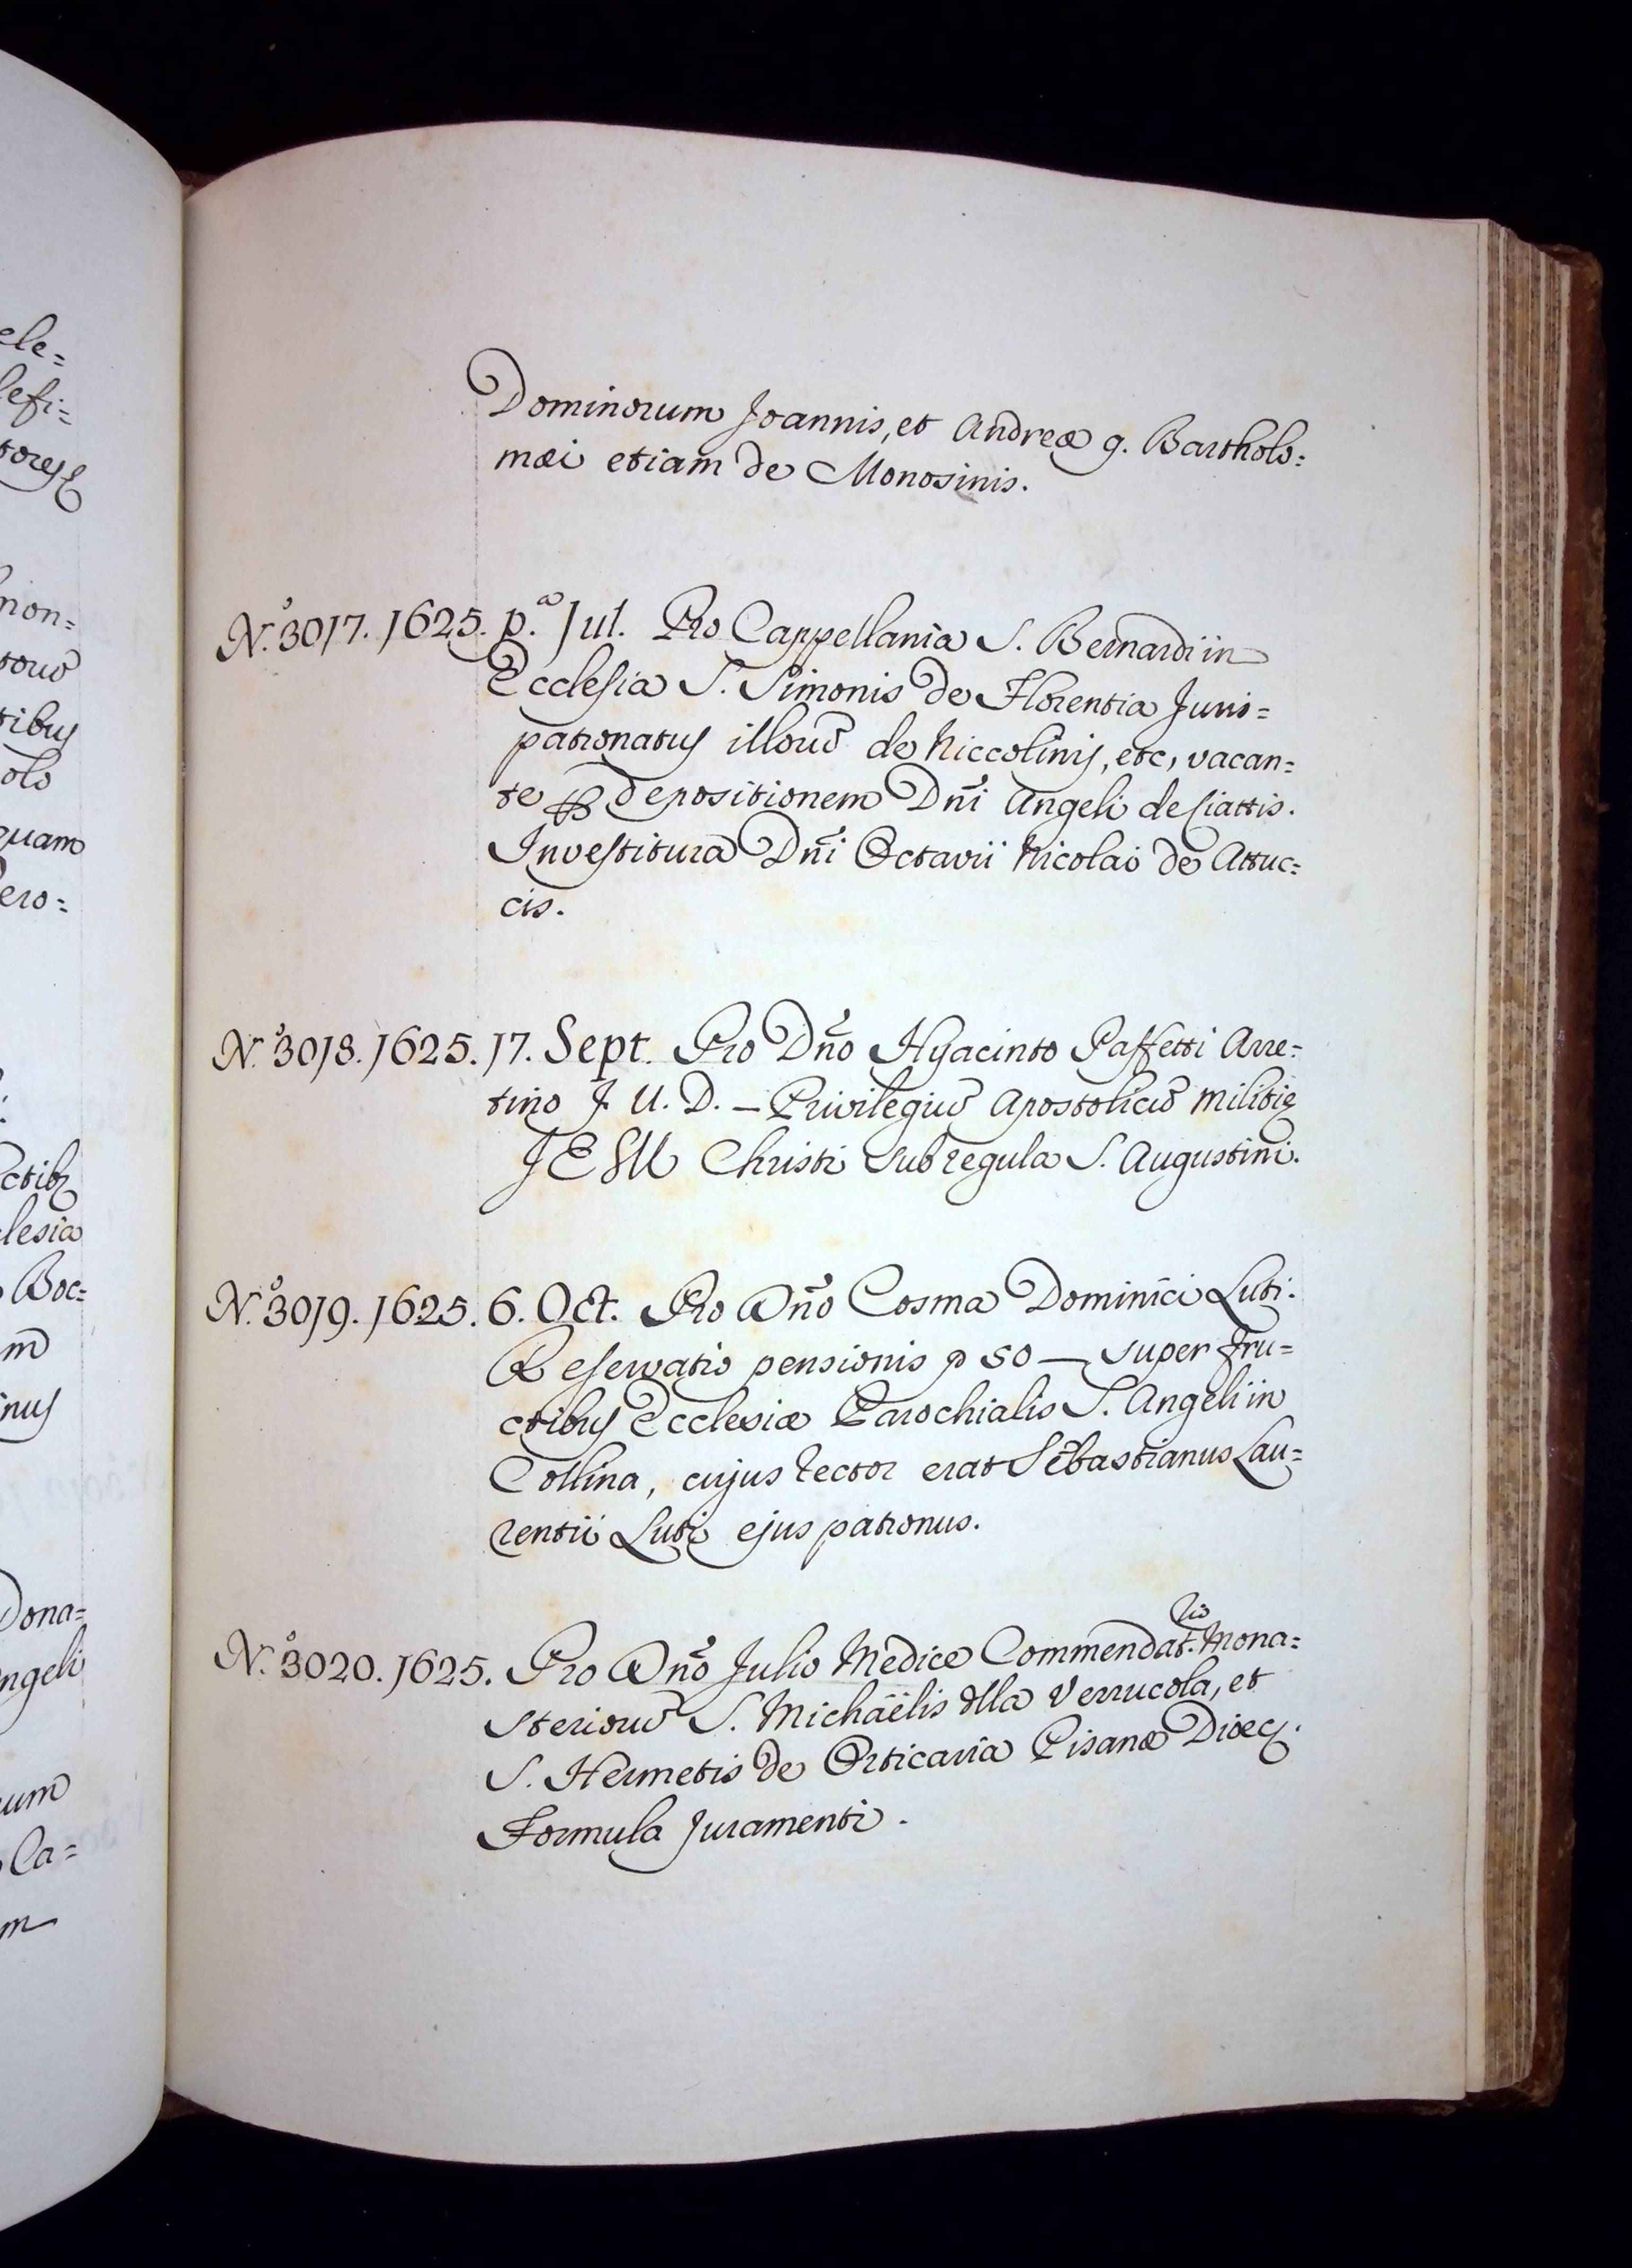 ele=
lefi=
mon=
quam
ero=
lesia
Boc=
Dona=
ngeli
um
Ca=
Dominorum Joannis, et Andreæ q. Bartholo=
mæi etiam de Monosinis.
N.º 3017. 1625. p.ª Jul. Pro Cappellania S. Bernardi in
Ecclesia S. Simonis de Florentia Juris=
patronatus illorũ de Niccolinis, etc, vacan=
te depositionem Dñi Angeli de Ciattis.
Investitura Dñi Octavii Nicolai de Attuc=
cis.
N.º 3018. 1625. 17. Sept. Pro Dño Hyacinto Paffetti Arre=
tino J. U. D. – Privilegiũ Apostolicũ Militię
JESU Christi sub regula S. Augustini.
N.º 3019. 1625. 6. Oct. Pro Dño Cosma Dominici Luti.
Reservatio pensionis p 50 — super fru=
ctibus Ecclesiæ Parochialis S. Angeli in
Collina, cujus rector erat Sebastianus Lau=
rentii Luti ejus patronus.
N.º 3020. 1625. Pro Dño Julio Medice Commendat.rio Mona=
steriorũ S. Michaëlis dlla Verrucola, et
S. Hermetis de Orticaria Pisanæ Diœc.
Formula Juramenti.